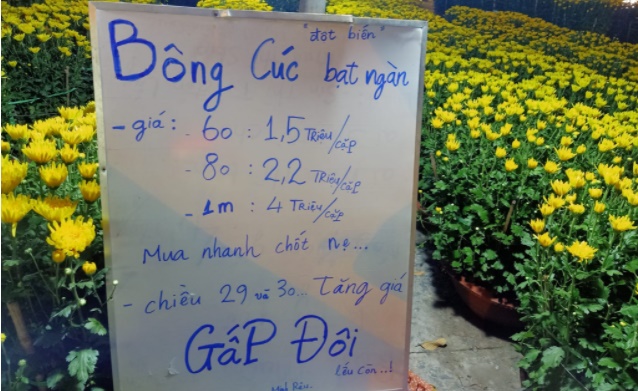 "đột biến"
Bông Cúc bạt ngàn
- giá : - 60 : 1,5 TRIỆU/CẶP
- 80 : 2,2 TRIỆU/CẶP
- 1m : 4 TRIỆU/CẶP
Mua nhanh chốt nẹ...
- chiều 29 và 30... Tăng giá
GẤP ĐÔI
lếu còn..!